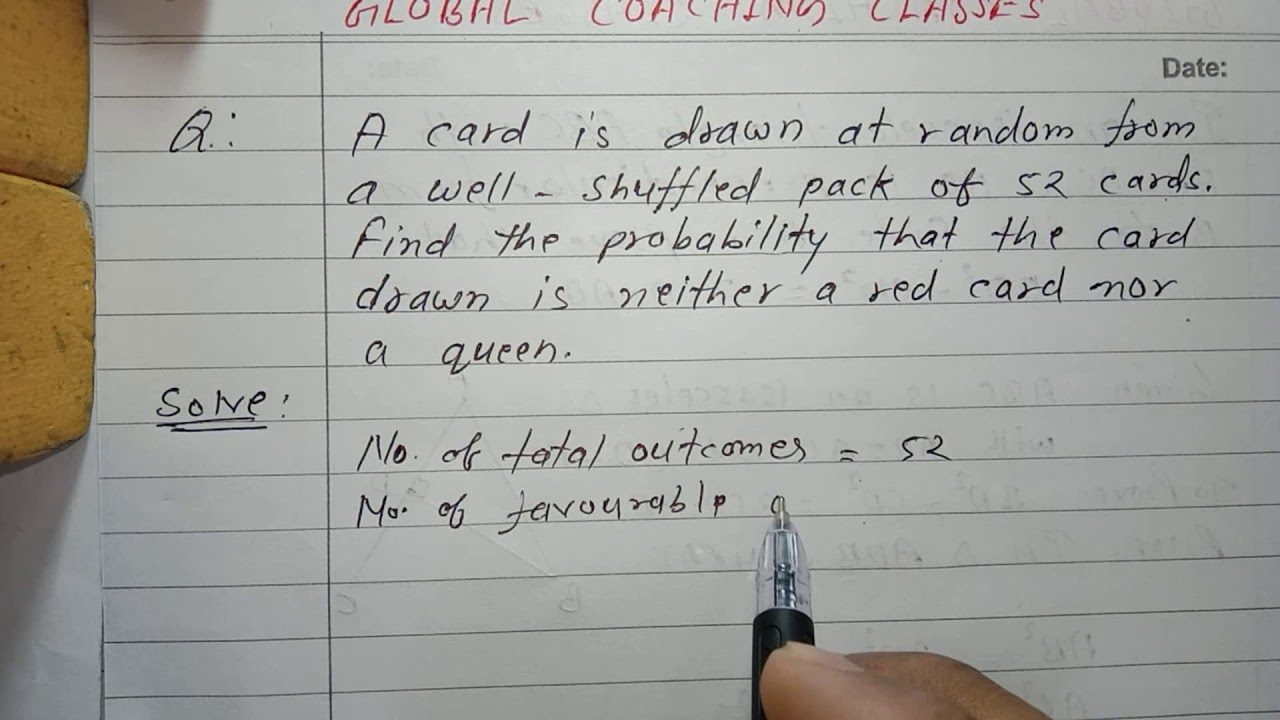 GLOBAL COACHING CLASSES
Date:
Q.: A card is drawn at random from
a well - shuffled pack of 52 cards.
Find the probability that the card
drawn is neither a red card nor
a queen.
Solve:
No. of total outcomes = 52
No. of favourable o